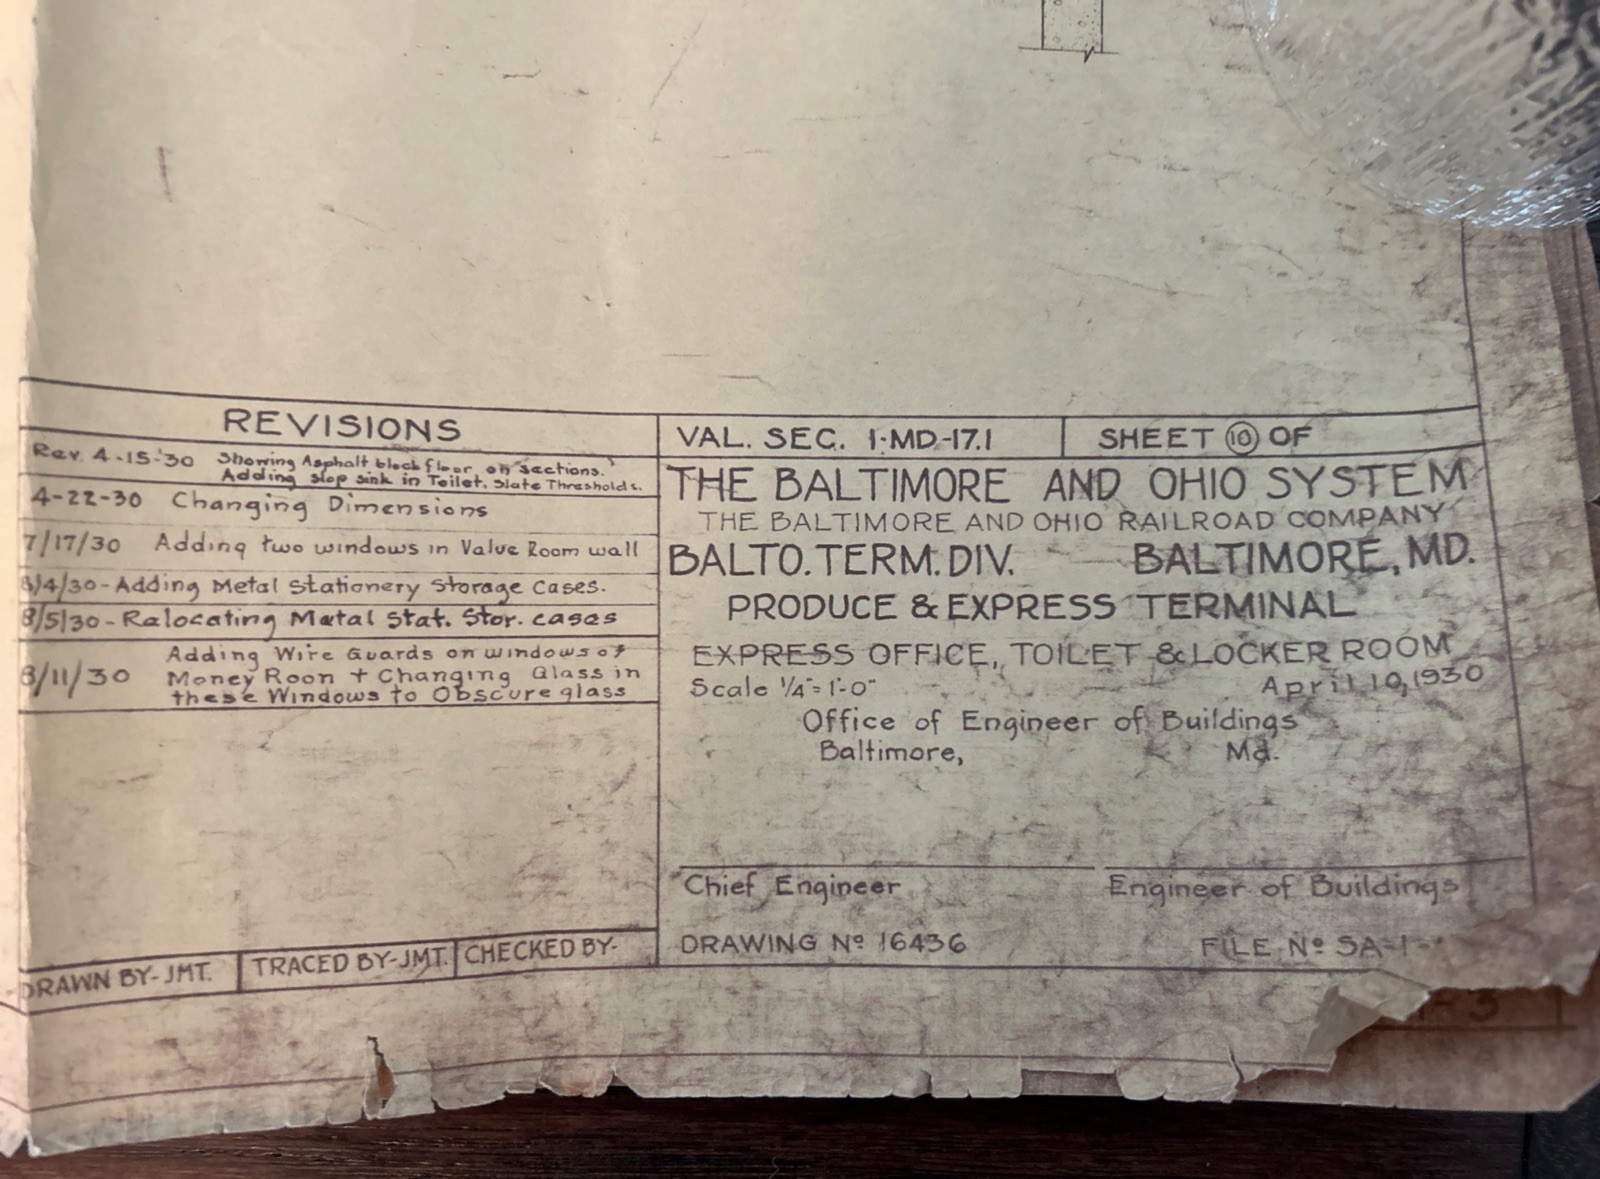 REVISIONS
Rev. 4-15-30 Showing Asphalt block floor, on sections.
Adding slop sink in Toilet. Slate Thresholds.
4-22-30 Changing Dimensions
7/17/30 Adding two windows in Value Room wall
8/4/30-Adding Metal Stationery Storage Cases.
8/5/30-Ralocating Matal Stat. Stor. casas
8/11/30 Adding Wire Guards on windows of
Money Roon + Changing Glass in
these Windows to Obscure glass
DRAWN BY-JMT. TRACED BY-JMT. CHECKED BY-
VAL. SEC. 1-MD-17.1 SHEET 10 OF
THE BALTIMORE AND OHIO SYSTEM
THE BALTIMORE AND OHIO RAILROAD COMPANY
BALTO. TERM. DIV. BALTIMORE, MD.
PRODUCE & EXPRESS TERMINAL
EXPRESS OFFICE, TOILET & LOCKER ROOM
Scale 1/4"=1'-0" April 10, 1930
Office of Engineer of Buildings
Baltimore, Md.
Chief Engineer Engineer of Buildings
DRAWING Nº 16436 FILE Nº SA-1-
-3